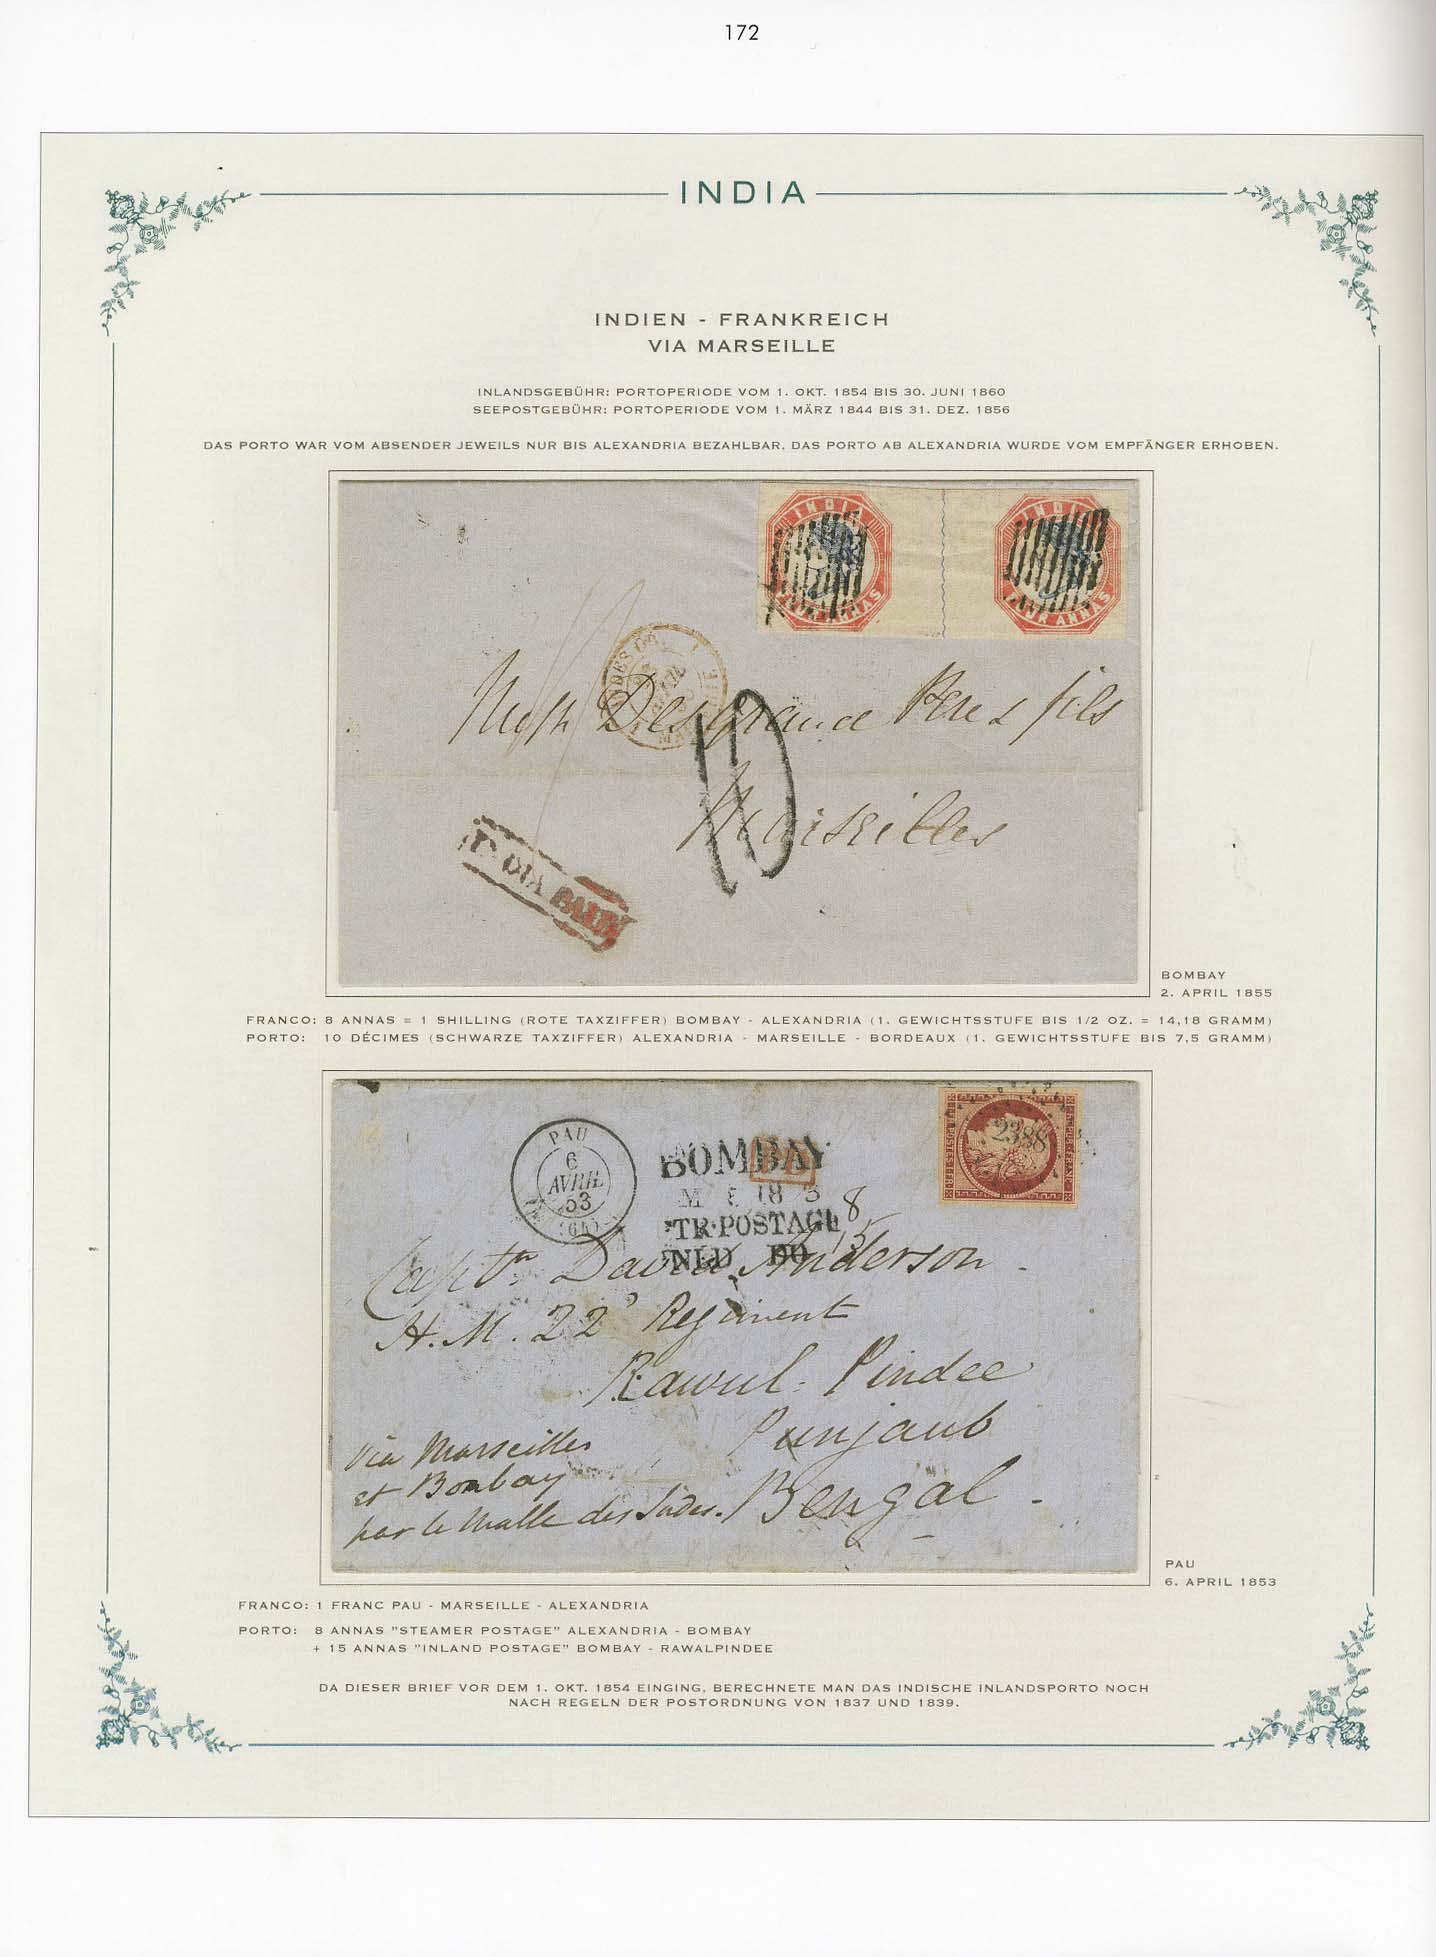 172
INDIA
INDIEN - FRANKREICH
VIA MARSEILLE
INLANDSGEBÜHR: PORTOPERIODE VOM 1. OKT. 1854 BIS 30. JUNI 1860
SEEPOSTGEBÜHR: PORTOPERIODE VOM 1. MÄRZ 1844 BIS 31. DEZ. 1856
DAS PORTO WAR VOM ABSENDER JEWEILS NUR BIS ALEXANDRIA BEZAHLBAR. DAS PORTO AB ALEXANDRIA WURDE VOM EMPFÄNGER ERHOBEN.
INDIA
ANNAS
INDIA
FOUR ANNAS
Desgrand Père & fils
10
Marseilles
INDIA PAID
BOMBAY
2. APRIL 1855
FRANCO: 8 ANNAS = 1 SHILLING (ROTE TAXZIFFER) BOMBAY - ALEXANDRIA (1. GEWICHTSSTUFE BIS 1/2 OZ. = 14,18 GRAMM)
PORTO: 10 DÉCIMES (SCHWARZE TAXZIFFER) ALEXANDRIA - MARSEILLE - BORDEAUX (1. GEWICHTSSTUFE BIS 7,5 GRAMM)
PAU
6
AVRIL
53
(64)
BOMBAY
18 3
STR. POSTAGE 8
INLD DO 15
2388
Captn David Anderson
H.M. 22d Regiment
Rawul. Pindee
Punjaub
Bengal
Via Marseilles
et Bombay
par le Malle des Indes.
PAU
6. APRIL 1853
FRANCO: 1 FRANC PAU - MARSEILLE - ALEXANDRIA
PORTO: 8 ANNAS "STEAMER POSTAGE" ALEXANDRIA - BOMBAY
+ 15 ANNAS "INLAND POSTAGE" BOMBAY - RAWALPINDEE
DA DIESER BRIEF VOR DEM 1. OKT. 1854 EINGING, BERECHNETE MAN DAS INDISCHE INLANDSPORTO NOCH
NACH REGELN DER POSTORDNUNG VON 1837 UND 1839.